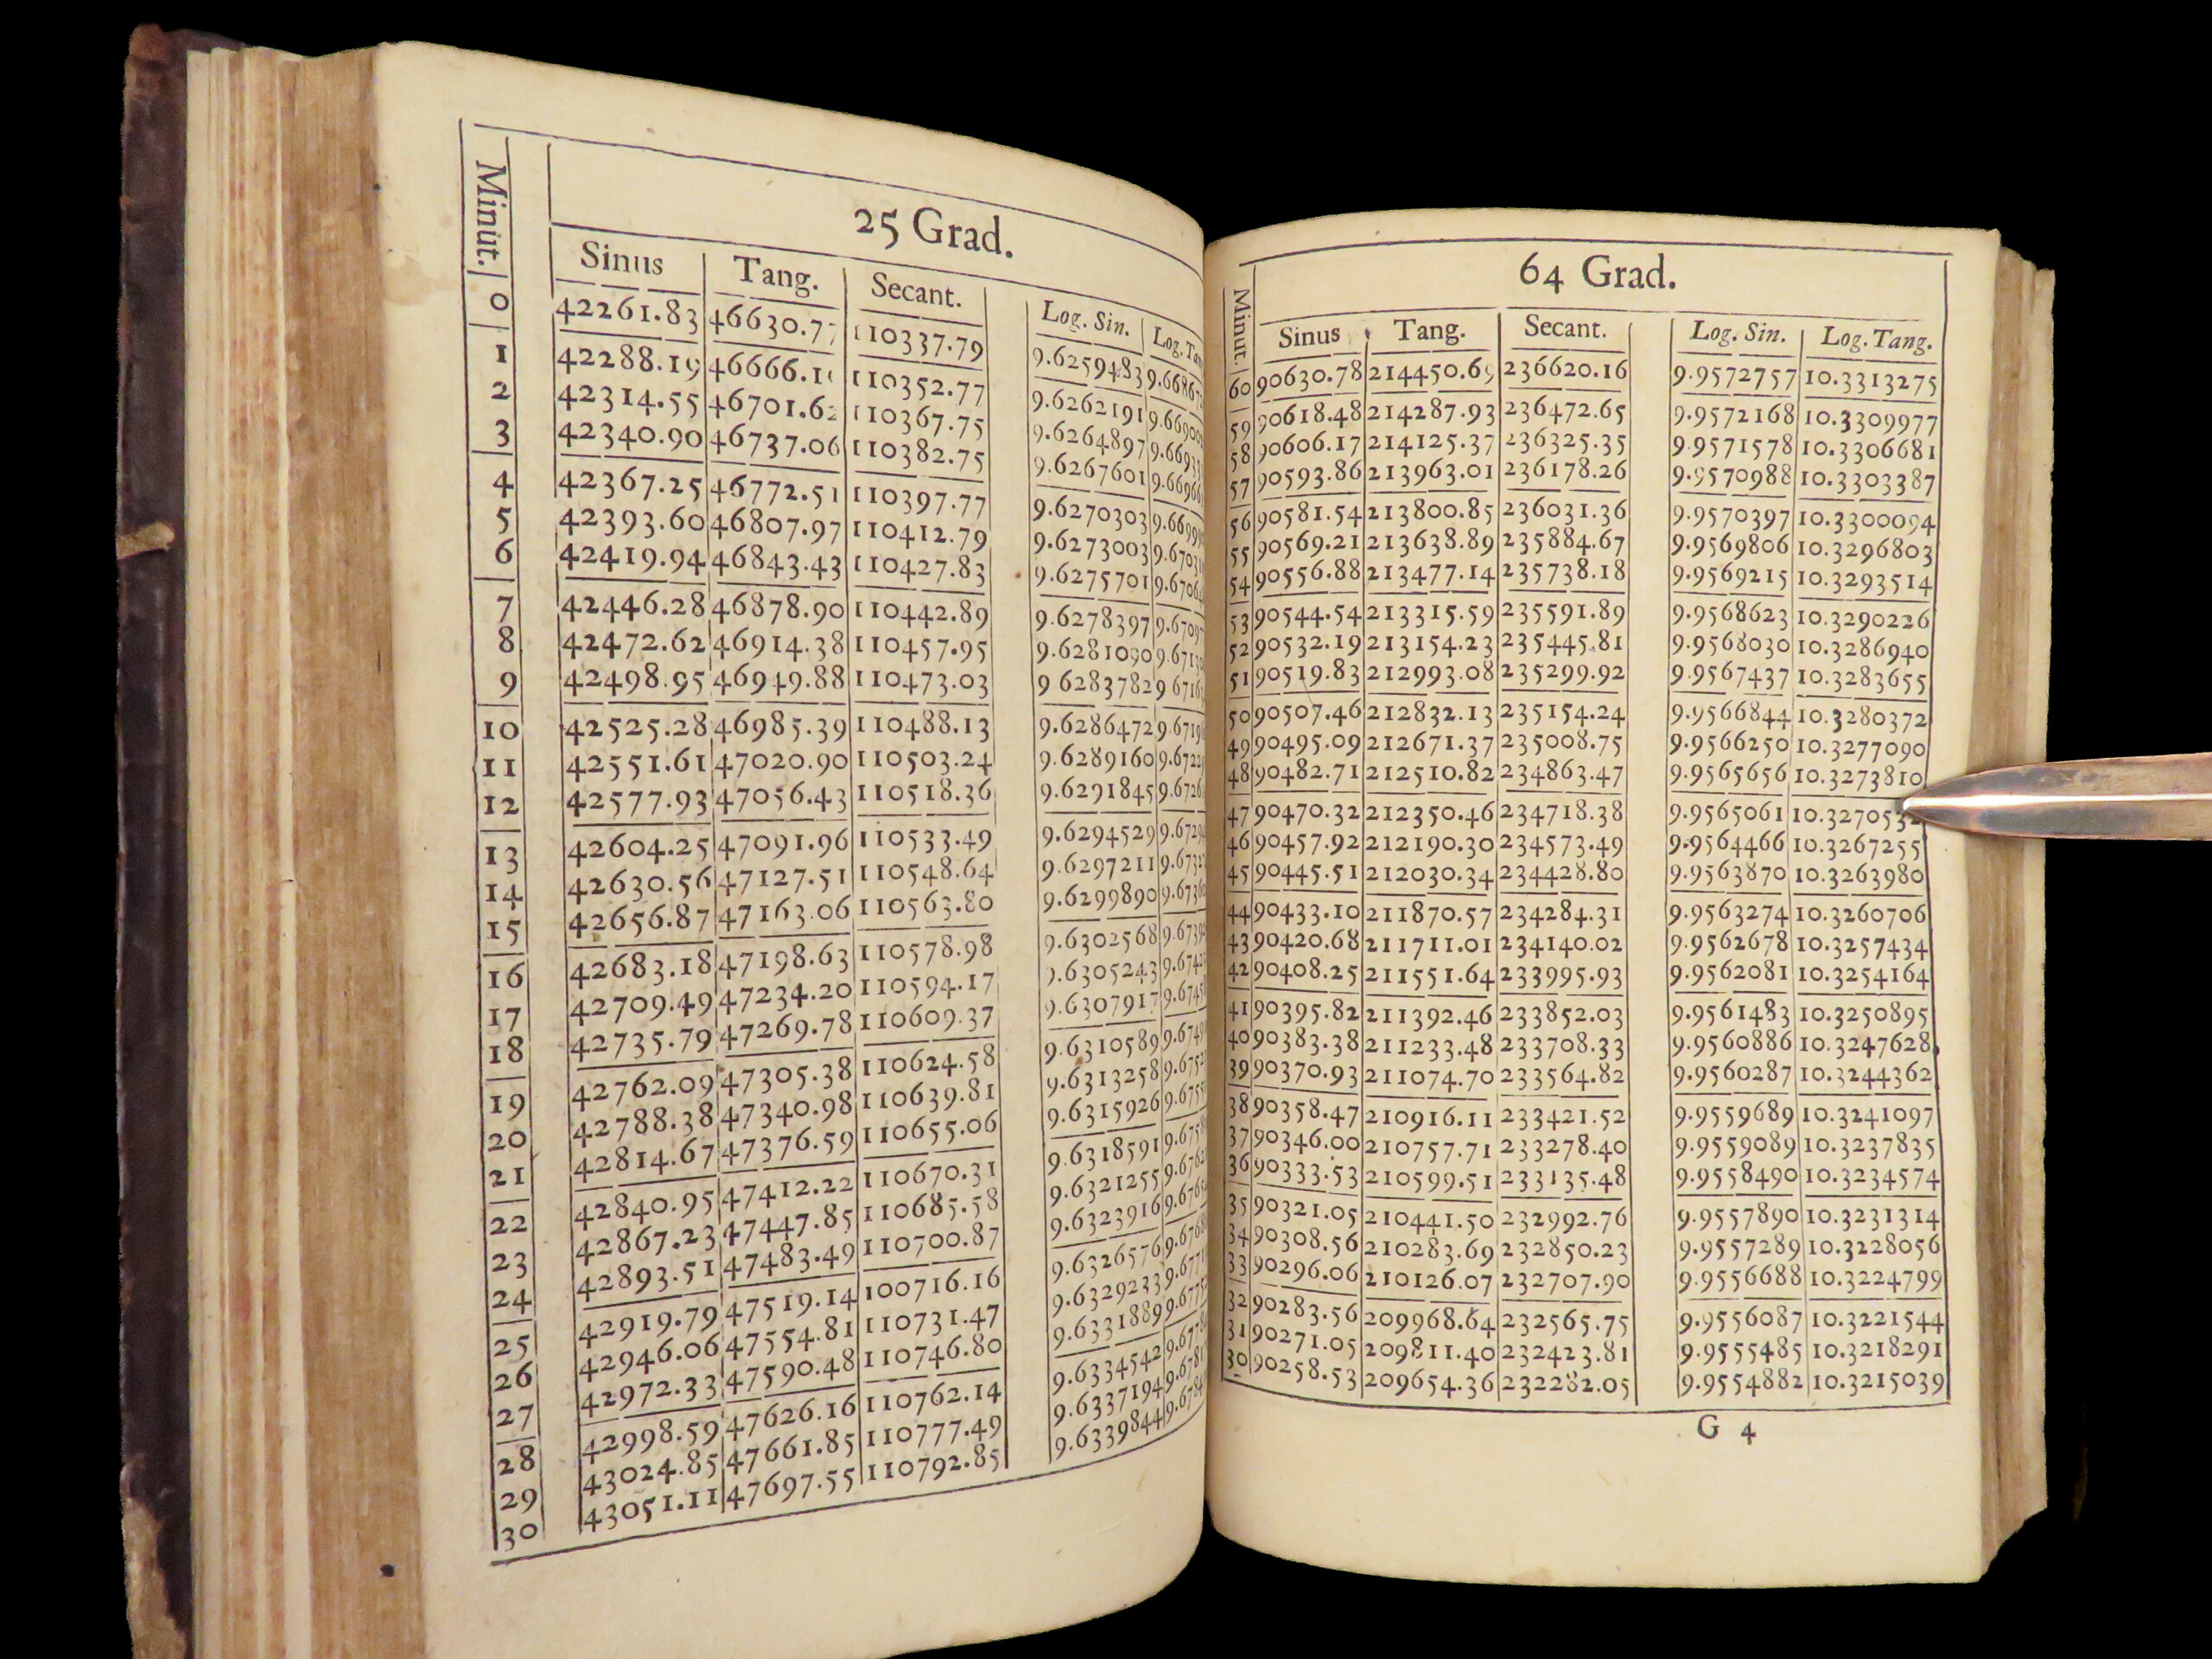 25 Grad.
Minut. Sinus Tang. Secant. Log. Sin.
0 42261.83 46630.77 110337.79 9.6259483
1 42288.19 110352.77 9.6262191
2 42314.55 46701.62 110367.75 9.6264897
3 42340.90 46737.06 110382.75 9.6267601
4 42367.25 46772.51 110397.77 9.6270303
5 42393.60 46807.97 110412.79 9.6273003
6 42419.94 46843.43 110427.83 9.6275701
7 42446.28 46878.90 110442.89 9.6278397
8 42472.62 46914.38 110457.95 9.6281090
9 42498.95 46949.88 110473.03 9 6283782
10 42525.28 46985.39 110488.13 9.6286472
11 42551.61 47020.90 110503.24 9.6289160
12 42577.93 47056.43 110518.36 9.6291845
13 42604.25 47091.96 110533.49 9.6294529
14 42630.56 47127.51 110548.64 9.6297211
15 42656.87 47163.06 110563.80 9.6299890
16 42683.18 47198.63 110578.98 9.6302568
17 42709.49 47234.20 110594.17 9.6305243
18 42735.79 47269.78 110609.37 9.6307917
19 42762.09 47305.38 110624.58 9.6310589
20 42788.38 47340.98 110639.81 9.6313258
21 42814.67 47376.59 110655.06 9.6315926
22 42840.95 47412.22 110670.31 9.6318591
23 42867.23 47447.85 110685.58 9.6321255
24 42893.51 47483.49 110700.87 9.6323916
25 42919.79 47519.14 100716.16 9.6326576
26 42946.06 47554.81 110731.47 9.6329233
27 42972.33 47590.48 110746.80 9.6331889
28 42998.59 47626.16 110762.14 9.6334542
29 43024.85 47661.85 110777.49 9.6337194
30 43051.11 47697.55 110792.85 9.6339844
64 Grad.
Minut. Sinus Tang. Secant. Log. Sin. Log. Tang.
60 90630.78 214450.69 236620.16 9.9572757 10.3313275
59 90618.48 214287.93 236472.65 9.9572168 10.3309977
58 90606.17 214125.37 236325.35 9.9571578 10.3306681
57 90593.86 213963.01 236178.26 9.9570988 10.3303387
56 90581.54 213800.85 236031.36 9.9570397 10.3300094
55 90569.21 213638.89 235884.67 9.9569806 10.3296803
54 90556.88 213477.14 235738.18 9.9569215 10.3293514
53 90544.54 213315.59 235591.89 9.9568623 10.3290226
52 90532.19 213154.23 235445.81 9.9568030 10.3286940
51 90519.83 212993.08 235299.92 9.9567437 10.3283655
50 90507.46 212832.13 235154.24 9.9566844 10.3280372
49 90495.09 212671.37 235008.75 9.9566250 10.3277090
48 90482.71 212510.82 234863.47 9.9565656 10.3273810
47 90470.32 212350.46 234718.38 9.9565061 10.3270532
46 90457.92 212190.30 234573.49 9.9564466 10.3267255
45 90445.51 212030.34 234428.80 9.9563870 10.3263980
44 90433.10 211870.57 234284.31 9.9563274 10.3260706
43 90420.68 211711.01 234140.02 9.9562678 10.3257434
42 90408.25 211551.64 233995.93 9.9562081 10.3254164
41 90395.82 211392.46 233852.03 9.9561483 10.3250895
40 90383.38 211233.48 233708.33 9.9560886 10.3247628
39 90370.93 211074.70 233564.82 9.9560287 10.3244362
38 90358.47 210916.11 233421.52 9.9559689 10.3241097
37 90346.00 210757.71 233278.40 9.9559089 10.3237835
36 90333.53 210599.51 233135.48 9.9558490 10.3234574
35 90321.05 210441.50 232992.76 9.9557890 10.3231314
34 90308.56 210283.69 232850.23 9.9557289 10.3228056
33 90296.06 210126.07 232707.90 9.9556688 10.3224799
32 90283.56 209968.64 232565.75 9.9556087 10.3221544
31 90271.05 209811.40 232423.81 9.9555485 10.3218291
30 90258.53 209654.36 232282.05 9.9554882 10.3215039
G 4